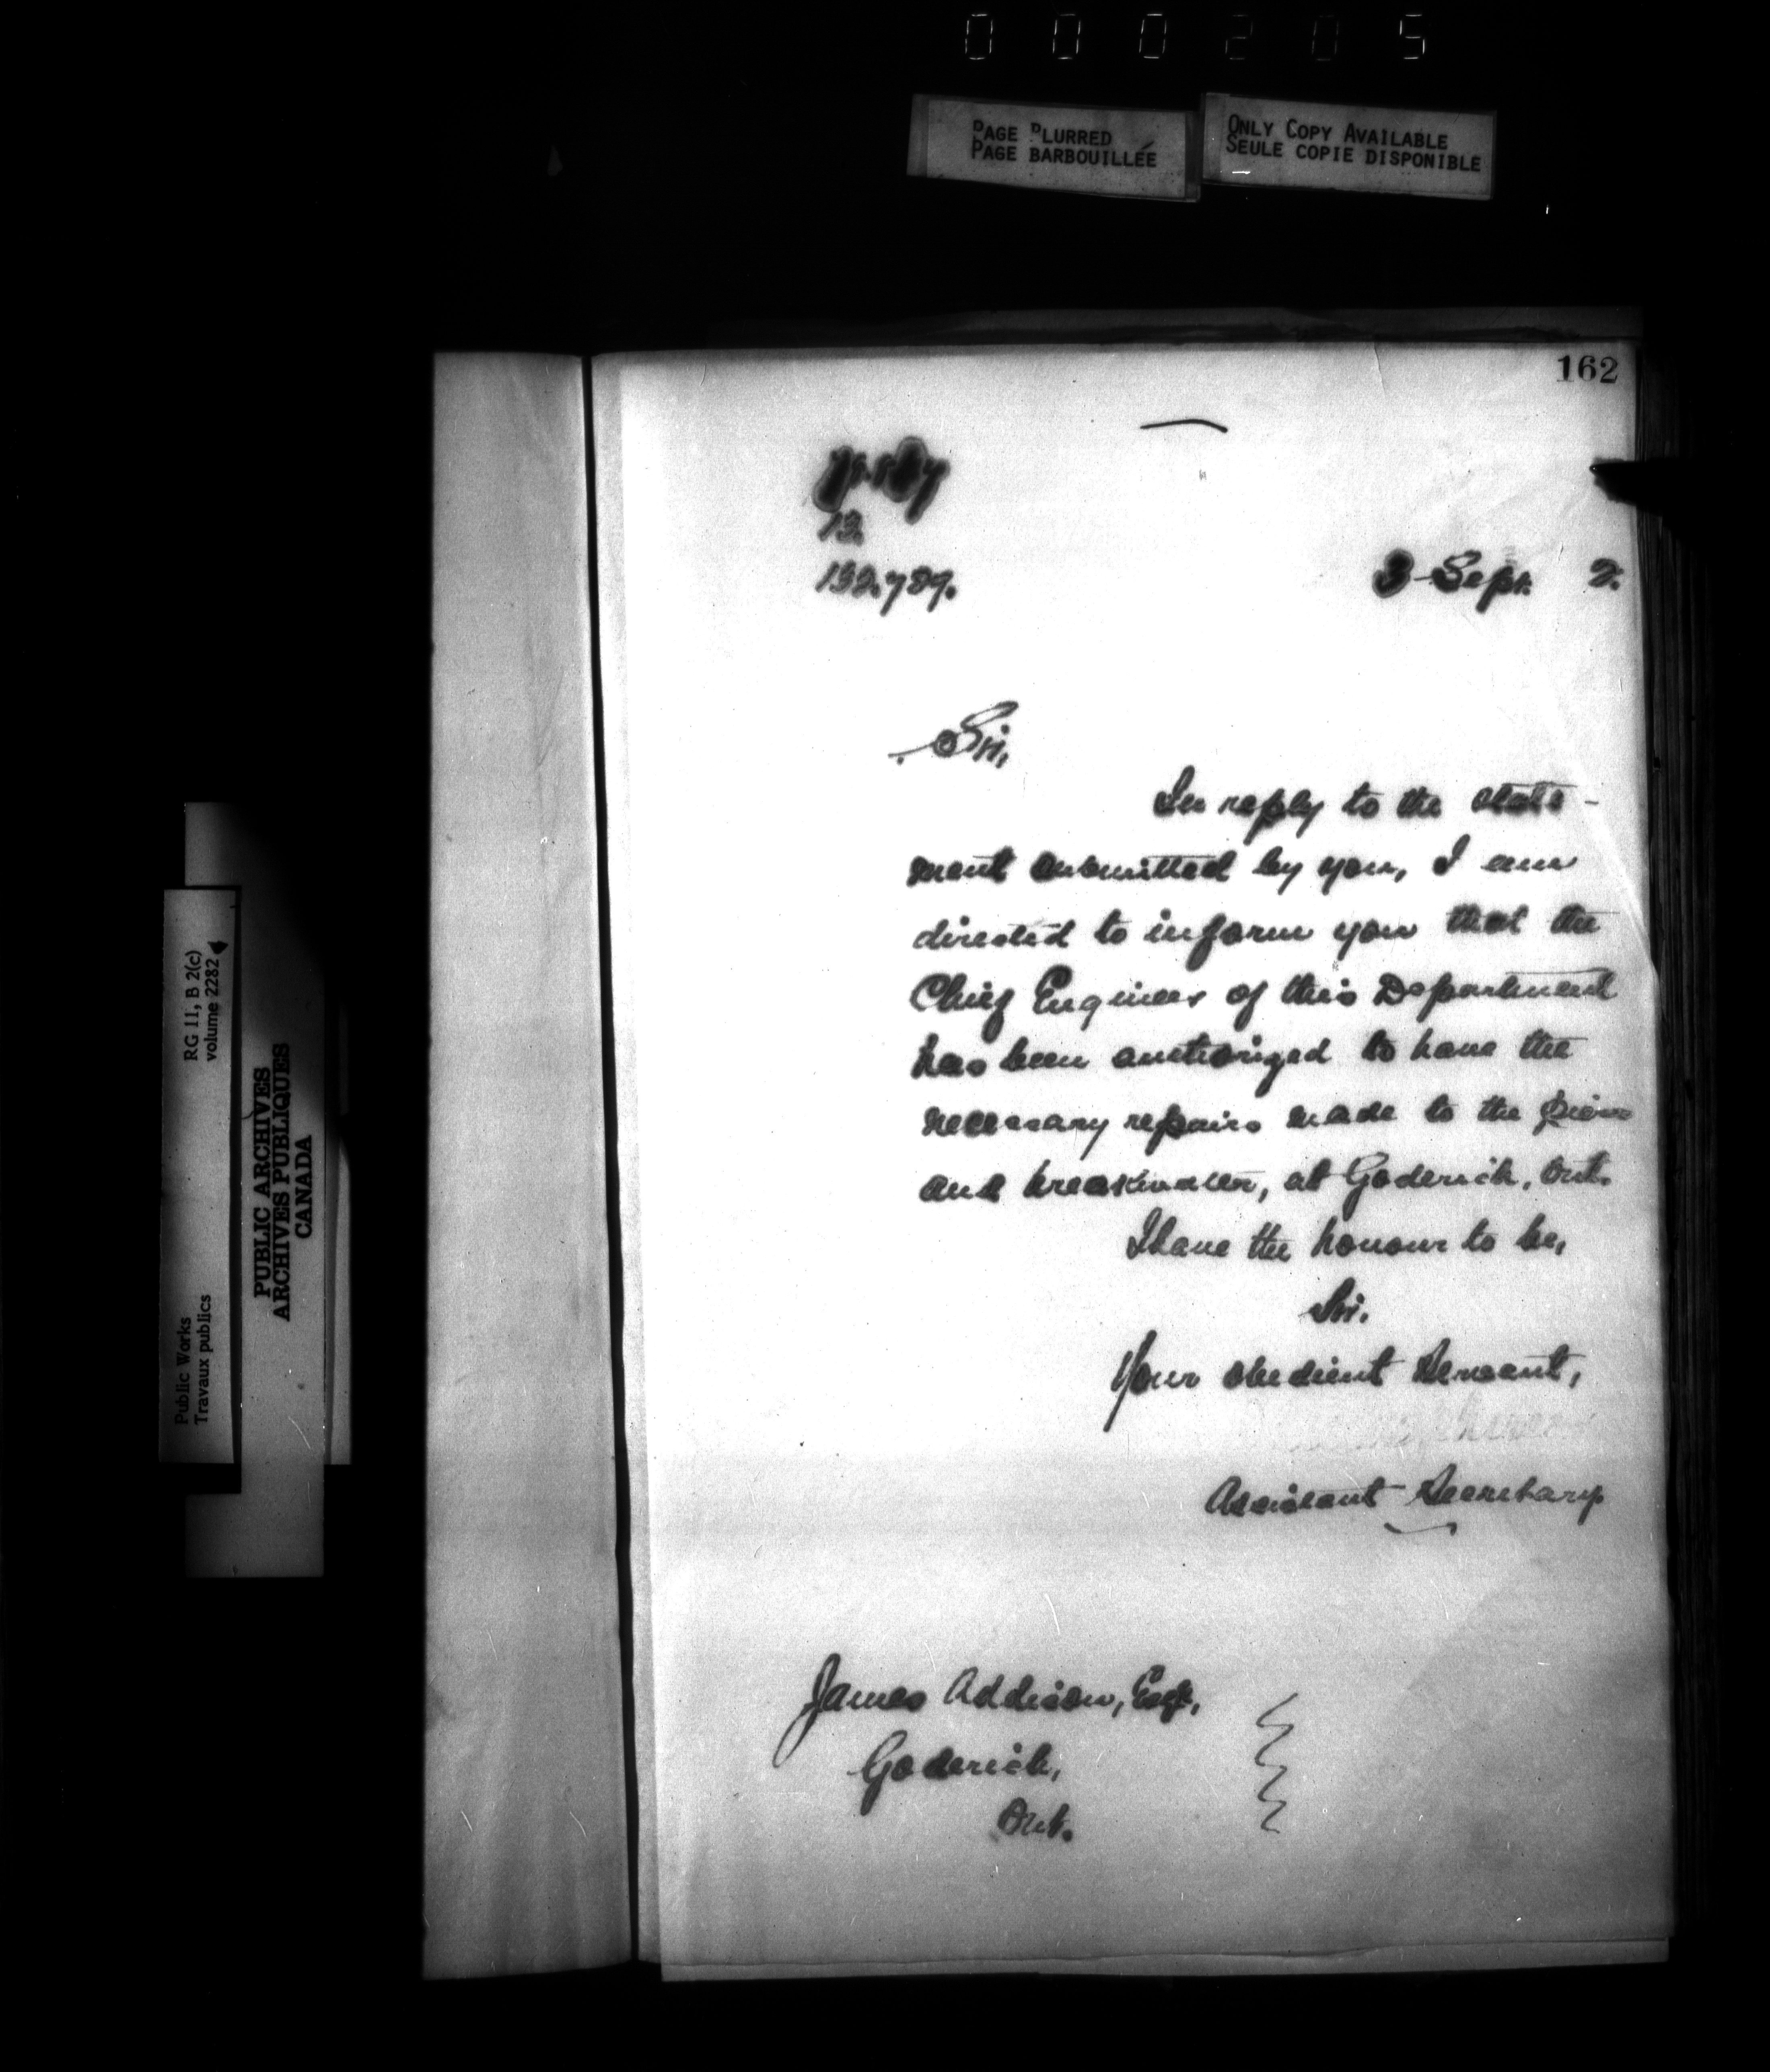 000205
PAGE BLURRED
PAGE BARBOUILLÉE
ONLY COPY AVAILABLE
SEULE COPIE DISPONIBLE
162
13.
132.789.
3 Sept. 2.
Sir,
In reply to the state-
ment submitted by you, I am
directed to inform you that the
Chief Engineer of this Department
has been authorized to have the
necessary repairs made to the piers
and breakwater, at Goderich, Ont.
I have the honour to be,
Sir.
Your obedient Servant,
Assistant Secretary
James Addison, Esq.,
Goderich,
Ont.
RG 11, B 2(c)
volume 2282
Public Works
Travaux publics
PUBLIC ARCHIVES
ARCHIVES PUBLIQUES
CANADA